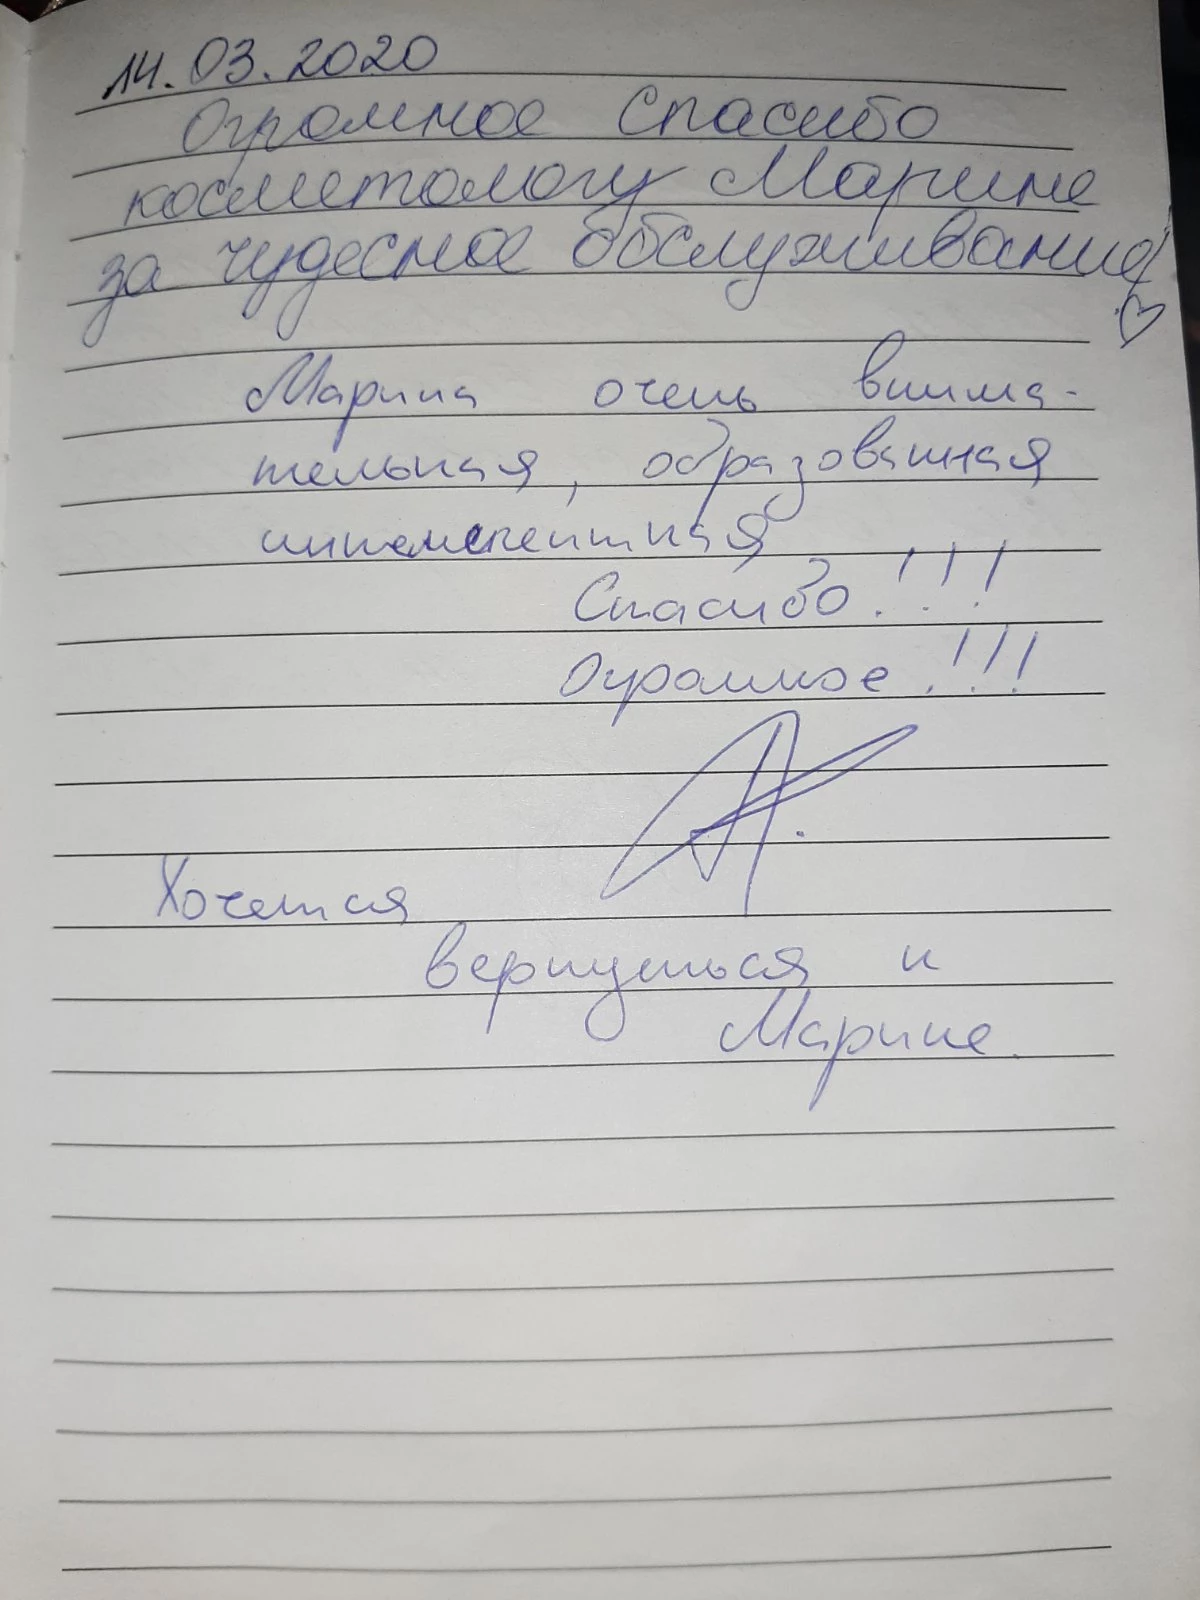 14.03.2020
Огромное Спасибо
косметологу Марине
за чудесное обслуживание
Марина очень внима-
тельная, образованная
Спасибо!!!
Огромное!!!
Хочется
вернуться к
Марине.